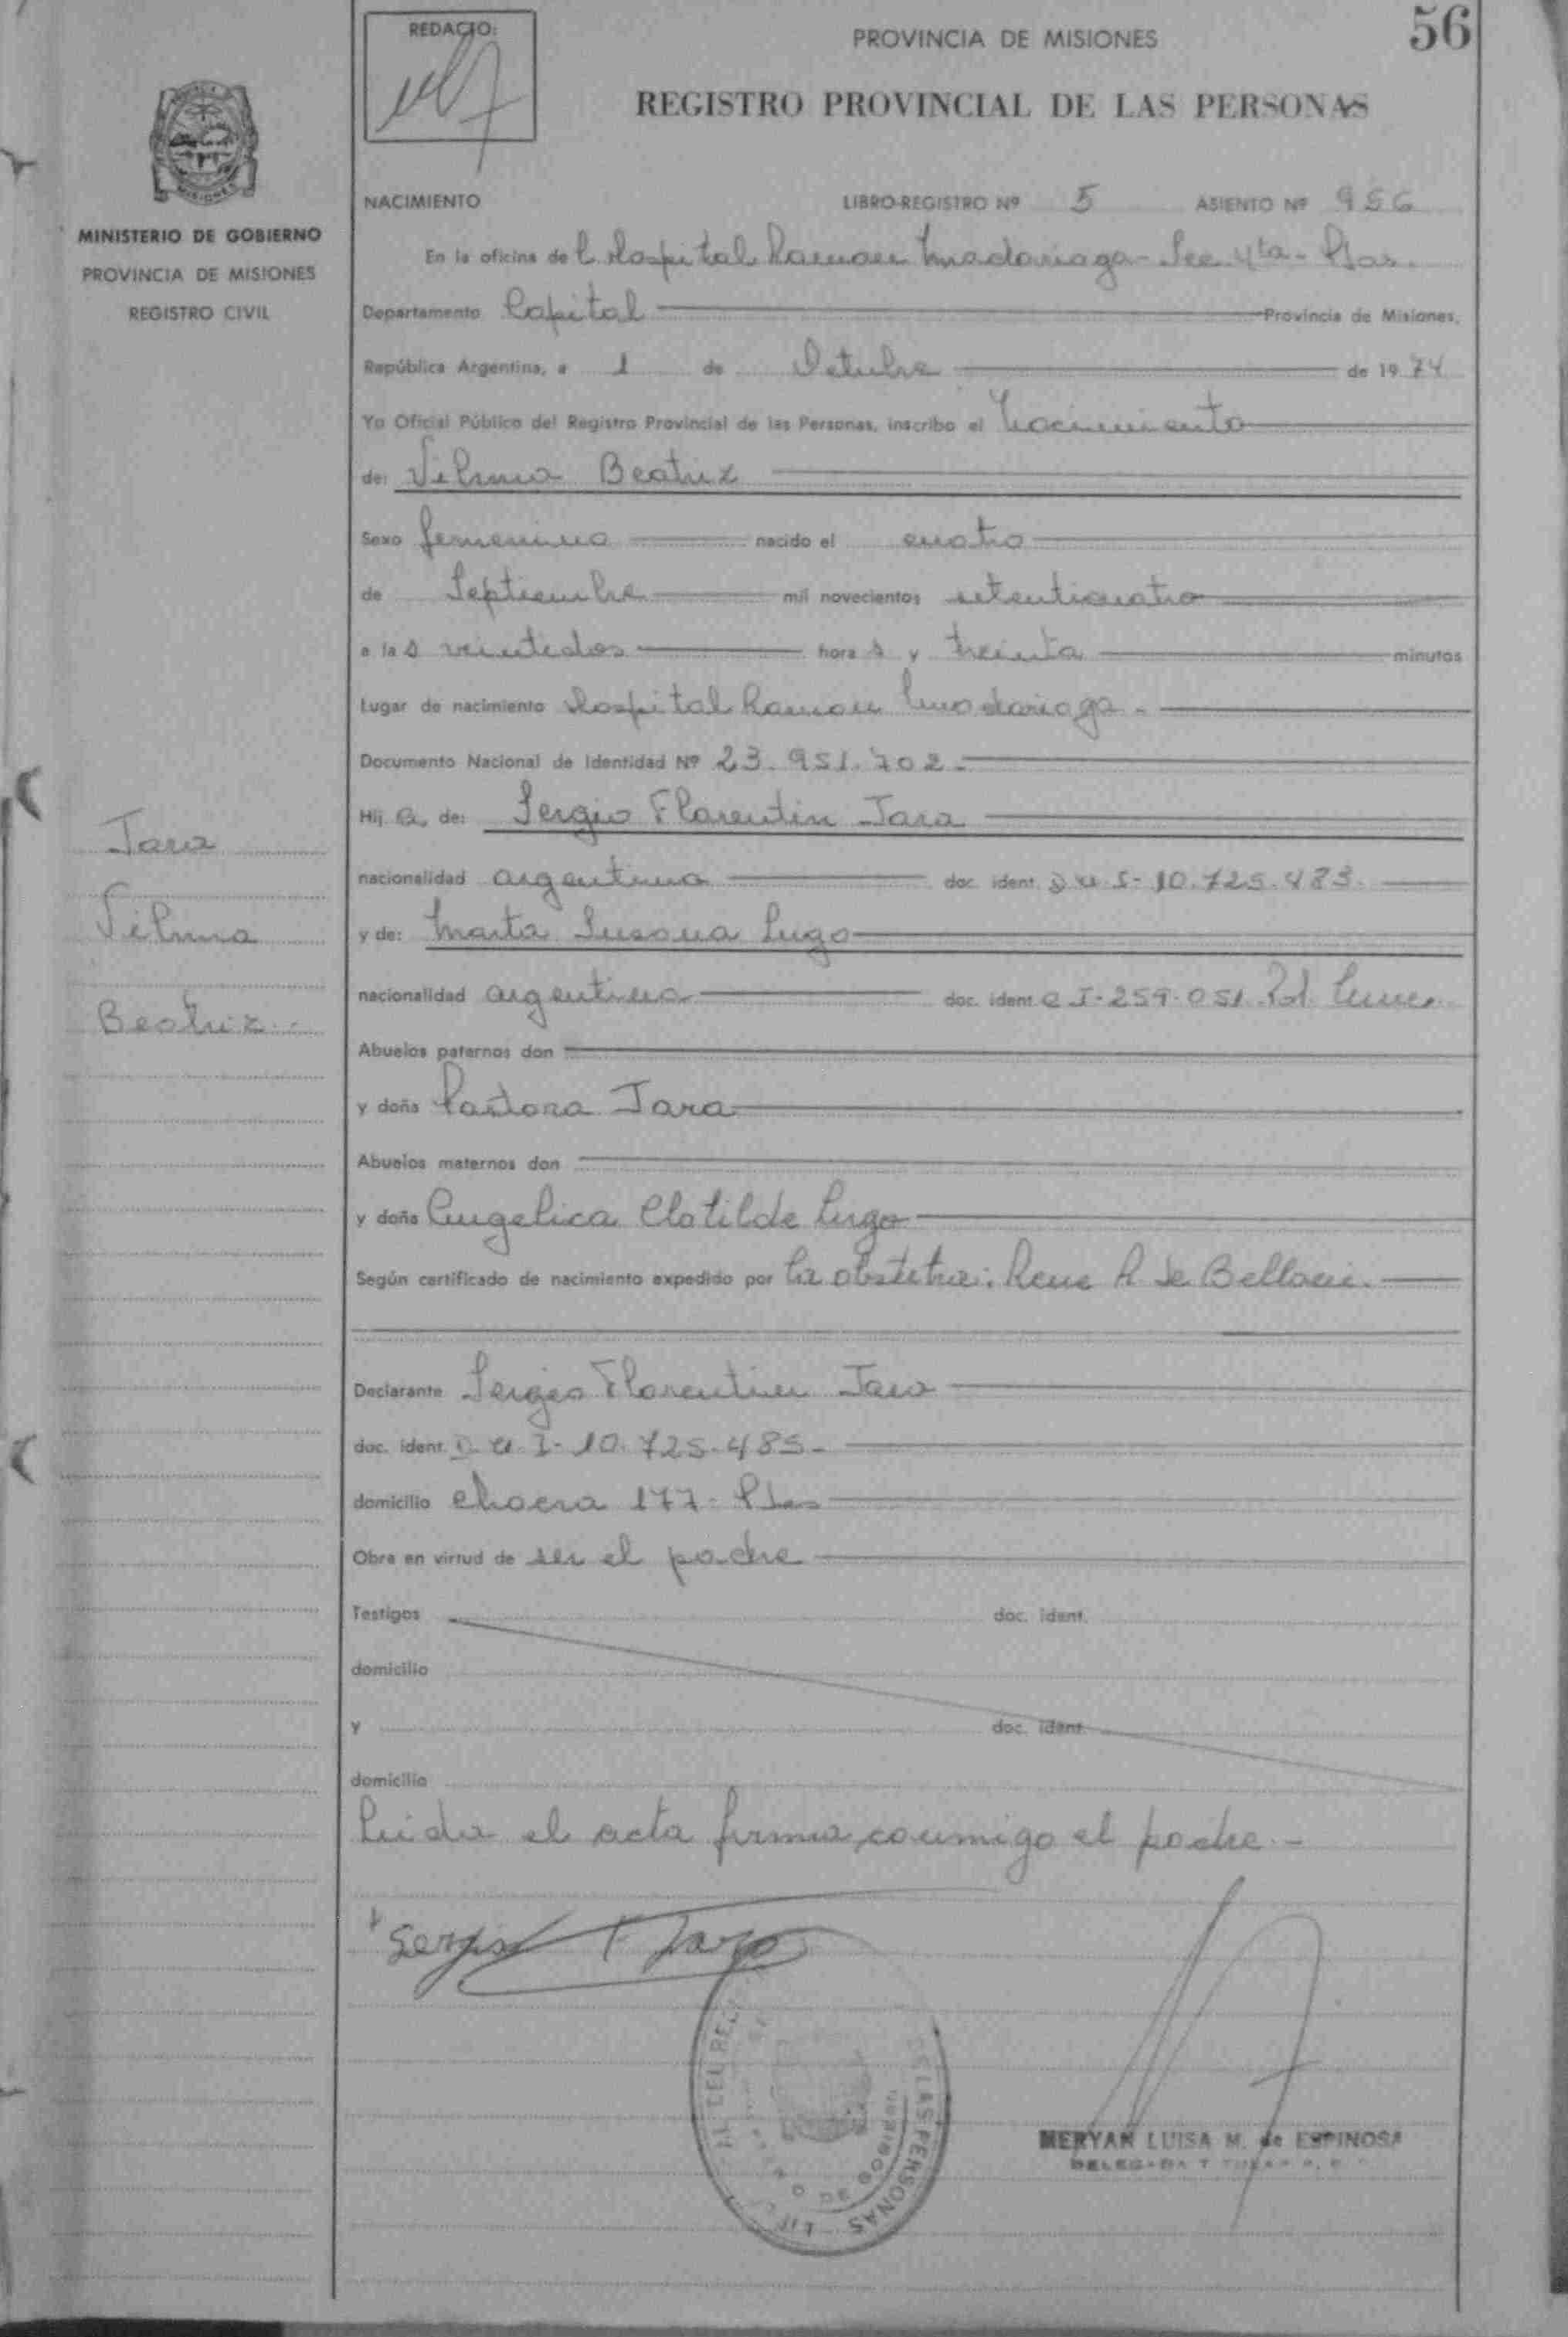 REDACTO:
PROVINCIA DE MISIONES
56
REGISTRO PROVINCIAL DE LAS PERSONAS
MISIONES
MINISTERIO DE GOBIERNO
PROVINCIA DE MISIONES
REGISTRO CIVIL
NACIMIENTO LIBRO-REGISTRO Nº 5 ASIENTO Nº 956
En la oficina del Hospital Ramon Madariaga - Sec 4ta - Pdas.
Departamento Capital Provincia de Misiones,
República Argentina, a 1 de Octubre de 1974
Yo Oficial Público del Registro Provincial de las Personas, inscribo el Nacimiento
de: Vilma Beatriz
Sexo femenino nacido el cuatro
de Septiembre mil novecientos setenticuatro
a las veintidos horas y treinta minutos
Lugar de nacimiento Hospital Ramon Madariaga -
Documento Nacional de Identidad Nº 23.951.702 -
Hija de: Sergio Florentin Jara
nacionalidad argentina doc. ident. D.U.I- 10.725.483.
y de: Marta Susana Lugo
nacionalidad argentina doc. ident. C I- 259.051. Pol.
Abuelos paternos don
y doña Pastora Jara
Abuelos maternos don
y doña Angelica Clotilde Lugo
Según certificado de nacimiento expedido por la obstetra: Rene R. de
Declarante Sergio Florentin Jara
doc. ident. D.U.I- 10.725.485-
domicilio chacra 177- Pdas
Obra en virtud de ser el padre
Testigos doc. ident.
domicilio
y doc. ident.
domicilio
Leida el acta firma conmigo el padre -
Sergio F Jara
Jara
Vilma
Beatriz -
DE LAS PERSONAS
MERYAN LUISA M. de ESPINOSA
DELEGADA